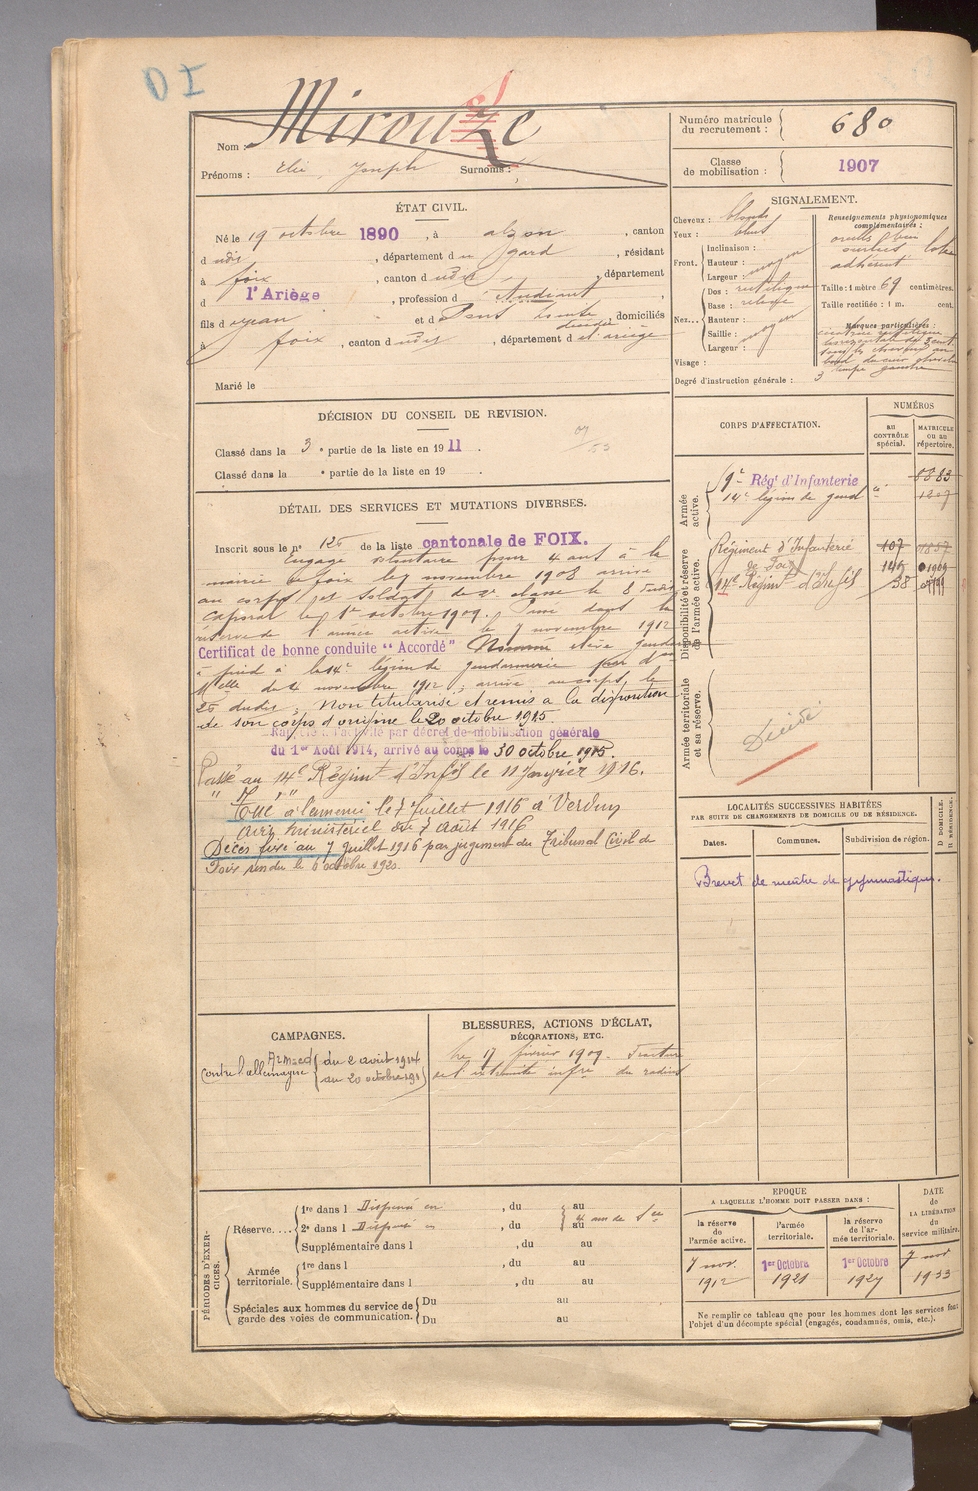 DI
Nom : Mirouze
Numéro matricule du recrutement : 680
Prénoms : Elie Joseph Surnoms :
Classe de mobilisation : 1907
ÉTAT CIVIL.
Né le 19 octobre 1890, à alzon, canton
d udis, département du gard, résidant
à foix, canton d udit, département
d l'Ariège, profession d' étudiant,
fils d jean et d domiciliés
à foix, canton d udis, département d e l'ariège
Marié le
SIGNALEMENT.
Cheveux : blonds
Yeux : bleus
Front. Inclinaison :
Hauteur : moyen
Largeur :
Nez... Dos : rectiligne
Base : relevée
Hauteur :
Saillie : moyen
Largeur :
Visage :
Renseignements physionomiques complémentaires :
adhérent
Taille : 1 mètre 69 centimètres.
Taille rectifiée : 1 m. cent.
Marques particulières :
cicatrice
tempe gauche
Degré d'instruction générale : 3
DÉCISION DU CONSEIL DE REVISION.
Classé dans la 3e partie de la liste en 1911.
Classé dans la e partie de la liste en 19 .
DÉTAIL DES SERVICES ET MUTATIONS DIVERSES.
Inscrit sous le n° 126 de la liste cantonale de FOIX.
Engagé volontaire pour 4 ans à la
mairie de foix le 7 novembre 1908 arrivé
au corps et soldat de 2e classe le 8 dudit
Caporal le 1er octobre 1909. Passé dans la
réserve de l'armée active le 7 novembre 1912
Certificat de bonne conduite "Accordé" Nommé élève gendarme
à pied à la 14e légion de gendarmerie par d on
Mlle du 4 novembre 1912, arrivé au corps le
26 dudit, Non titularisé et remis à la disposition
de son corps d'origine le 20 octobre 1915.
Rappelé à l'activité par décret de mobilisation générale
du 1er Août 1914, arrivé au corps le 30 octobre 1915.
Passé au 14e Régimt d'Infie le 11 Janvier 1916.
Tué à l'ennemi le 7 Juillet 1916 à Verdun
avis ministériel du 7 août 1916
Décès fixé au 7 Juillet 1916 par jugement du Tribunal Civil de
Foix rendu le 6 octobre 1920.
CORPS D'AFFECTATION.
NUMÉROS
au CONTRÔLE spécial.
MATRICULE ou au répertoire.
Armée active.
59e Régt d'Infanterie
14e légion de gend
Disponibilité et réserve de l'armée active.
Régiment d'Infanterie de Foix 107
14e Régimt d'Infie 58
Armée territoriale et sa réserve.
Décédé
LOCALITÉS SUCCESSIVES HABITÉES
PAR SUITE DE CHANGEMENTS DE DOMICILE OU DE RÉSIDENCE.
Dates. Communes. Subdivision de région. D DOMICILE. R RÉSIDENCE.
Brevet de maître de gymnastique.
CAMPAGNES.
Contre l'allemagne
du 2 août 1914
au 20 octobre 191
BLESSURES, ACTIONS D'ÉCLAT,
DÉCORATIONS, ETC.
Le 17 février 1909. Fracture
de l'extrémité infre du radius
PÉRIODES D'EXERCICES.
Réserve.... 1re dans l Dispensé en , du au
2e dans l Dispensé , du au
4 ans de Sce
Supplémentaire dans l , du au
Armée territoriale. 1re dans l , du au
Supplémentaire dans l , du au
Spéciales aux hommes du service de garde des voies de communication. Du au
Du au
EPOQUE
A LAQUELLE L'HOMME DOIT PASSER DANS :
la réserve de l'armée active.
l'armée territoriale.
la réserve de l'armée territoriale.
DATE de LA LIBÉRATION du service militaire.
7 nov. 1912
1er Octobre 1921
1er Octobre 1927
7 nov 1933
Ne remplir ce tableau que pour les hommes dont les services font
l'objet d'un décompte spécial (engagés, condamnés, omis, etc.).